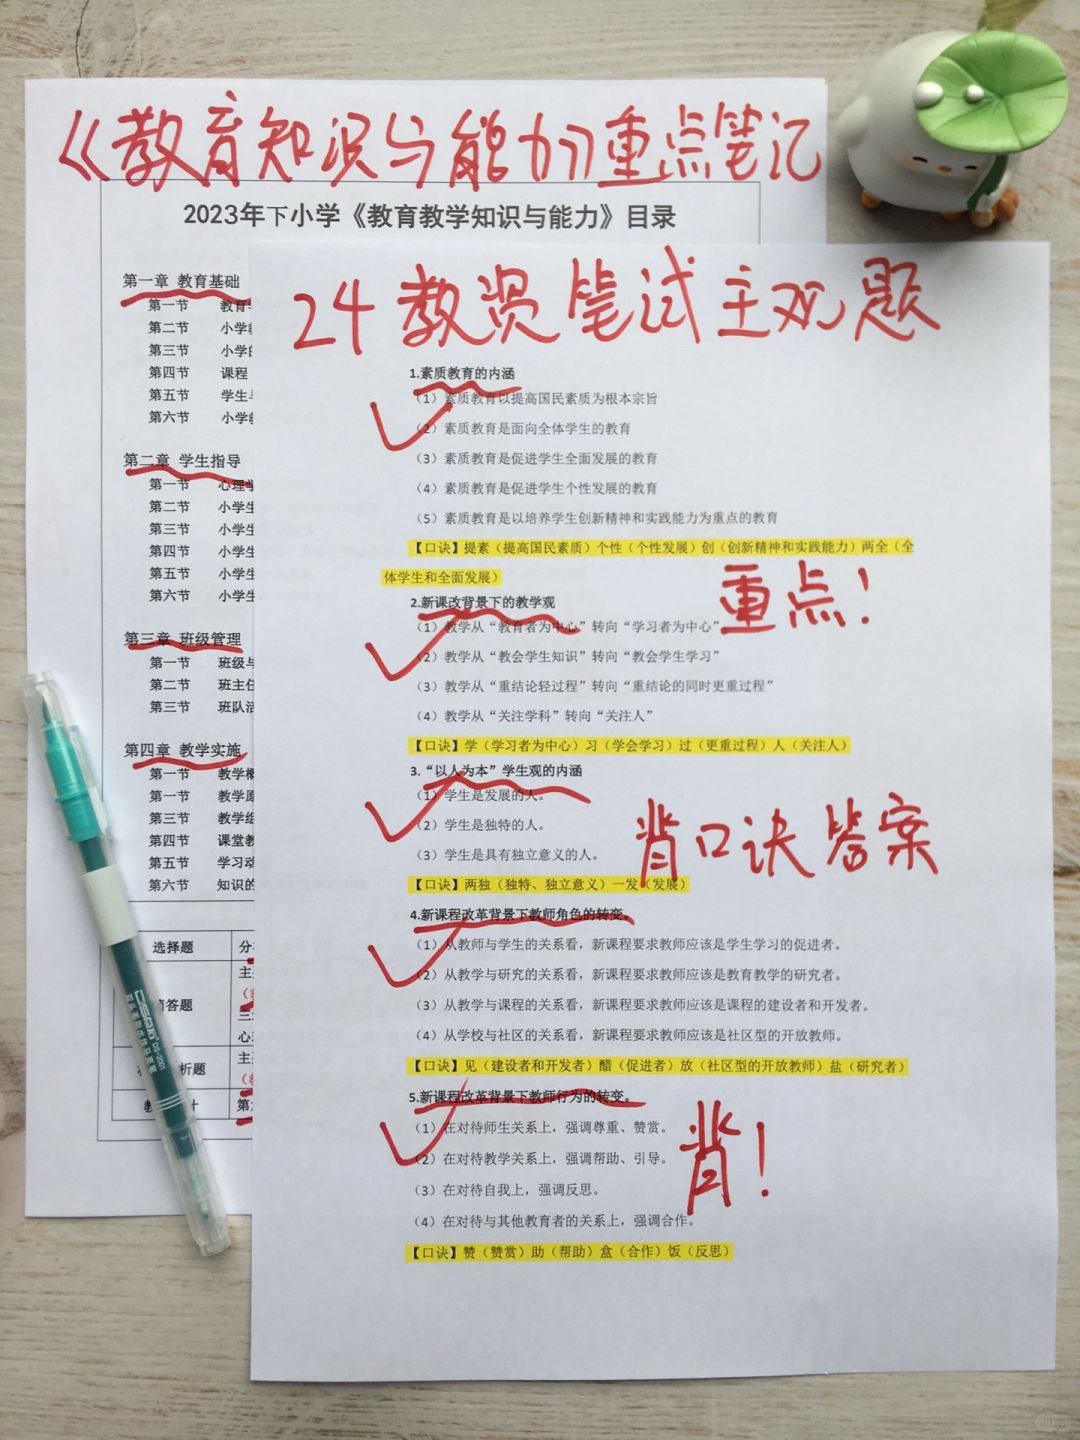 《教育知识与能力》重点笔记
2023年下小学《教育教学知识与能力》目录
第一章 教育基础
第一节 教育
第二节 小学教
第三节 小学的
第四节 课程
第五节 学生与
第六节 小学教
第二章 学生指导
第一节 心理学
第二节 小学生
第三节 小学生
第四节 小学生
第五节 小学生
第六节 小学生
第三章 班级管理
第一节 班级与
第二节 班主任
第三节 班队活
第四章 教学实施
第一节 教学概
第一节 教学原
第三节 教学组
第四节 课堂教
第五节 学习动
第六节 知识的
选择题 分
主
答题
三
心
主
析题
教 计 第
24教资笔试主观题
1.素质教育的内涵
（1）素质教育以提高国民素质为根本宗旨
（2）素质教育是面向全体学生的教育
（3）素质教育是促进学生全面发展的教育
（4）素质教育是促进学生个性发展的教育
（5）素质教育是以培养学生创新精神和实践能力为重点的教育
【口诀】提素（提高国民素质）个性（个性发展）创（创新精神和实践能力）两全（全
体学生和全面发展）
重点！
2.新课改背景下的教学观
（1）教学从“教育者为中心”转向“学习者为中心”
（2）教学从“教会学生知识”转向“教会学生学习”
（3）教学从“重结论轻过程”转向“重结论的同时更重过程”
（4）教学从“关注学科”转向“关注人”
【口诀】学（学习者为中心）习（学会学习）过（更重过程）人（关注人）
3.“以人为本”学生观的内涵
（1）学生是发展的人。
（2）学生是独特的人。
（3）学生是具有独立意义的人。
背口诀答案
【口诀】两独（独特、独立意义）一发（发展）
4.新课程改革背景下教师角色的转变。
（1）从教师与学生的关系看，新课程要求教师应该是学生学习的促进者。
（2）从教学与研究的关系看，新课程要求教师应该是教育教学的研究者。
（3）从教学与课程的关系看，新课程要求教师应该是课程的建设者和开发者。
（4）从学校与社区的关系看，新课程要求教师应该是社区型的开放教师。
【口诀】见（建设者和开发者）醋（促进者）放（社区型的开放教师）盐（研究者）
5.新课程改革背景下教师行为的转变。
（1）在对待师生关系上，强调尊重、赞赏。
（2）在对待教学关系上，强调帮助、引导。
（3）在对待自我上，强调反思。
（4）在对待与其他教育者的关系上，强调合作。
背！
【口诀】赞（赞赏）助（帮助）盒（合作）饭（反思）